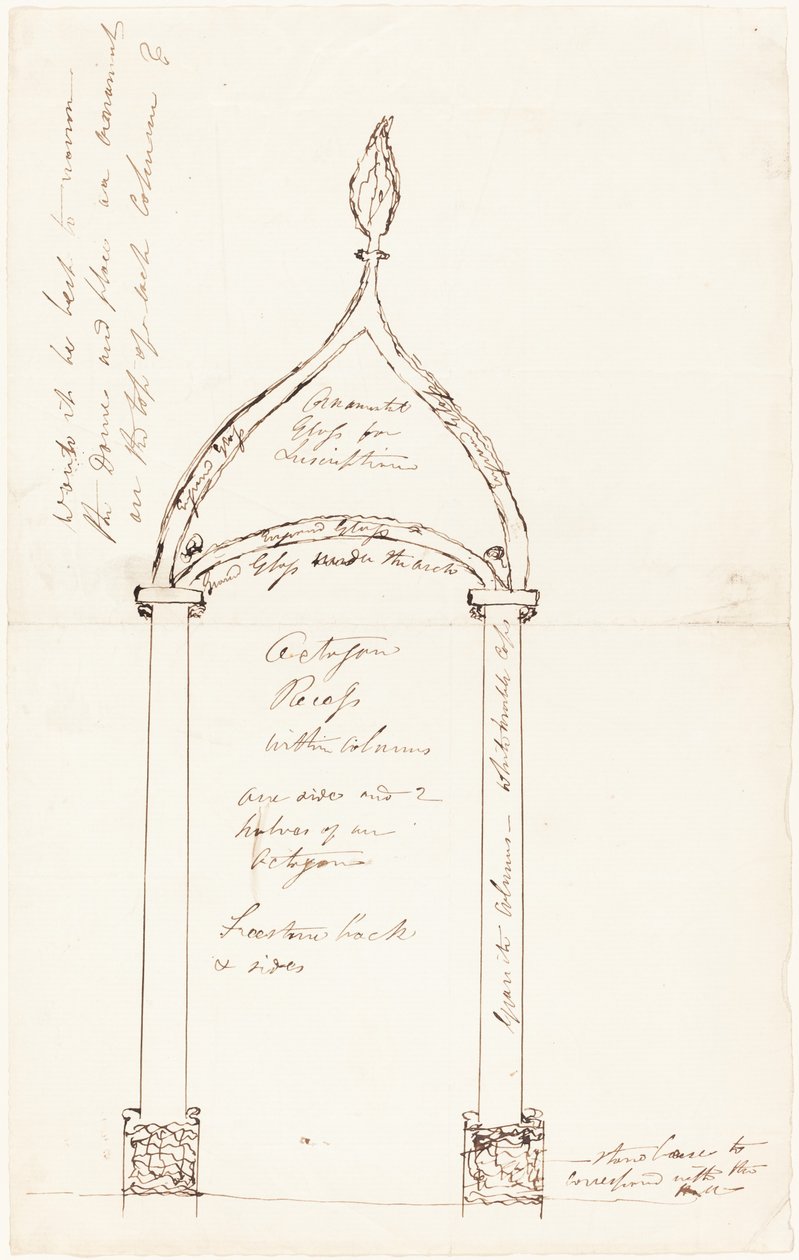 Would it be best to narrow
the Dome and place an ornament
on the top of each Column
Ornamental
Glass for
Inscription
Ground Glass
Ground Glass
Ground Glass under the arch
Octagon
Recess
within Columns
one side and 2
halves of an
Octagon
Freestone back
& sides
Granite Columns — White Marble Caps
stone base to
correspond with the